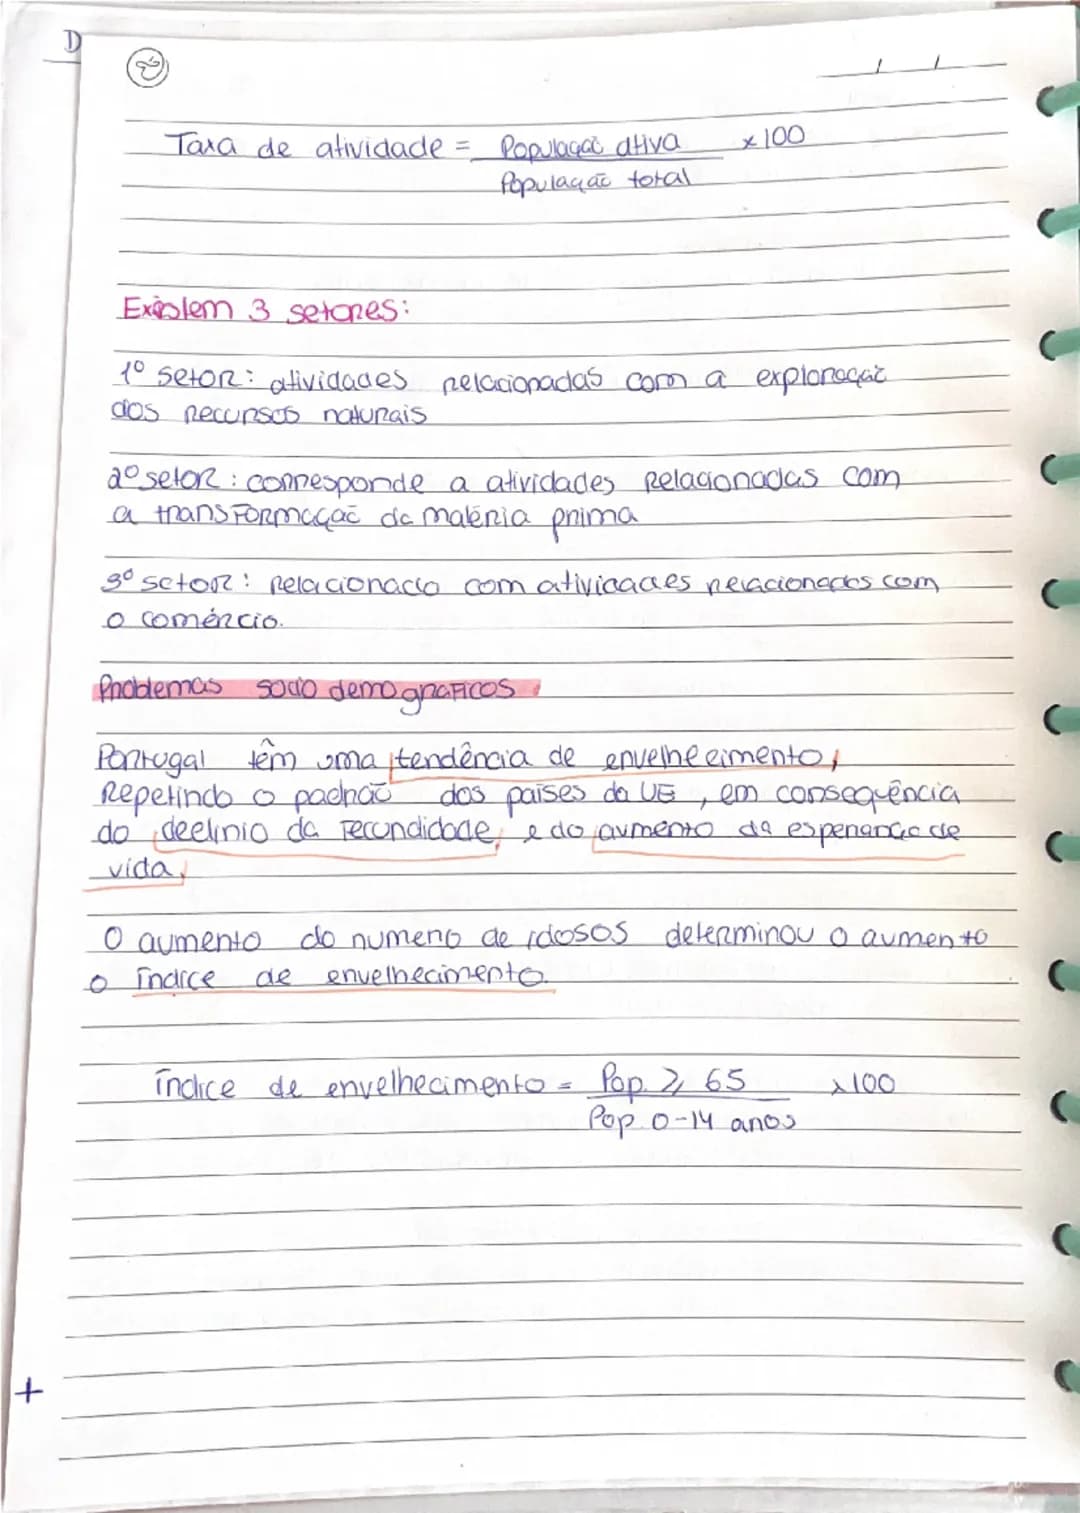 D
/ /
Taxa de atividade = População ativa x 100
População total
Existem 3 setores:
1º setor: atividades relacionadas com a exploração
dos recursos naturais
2º setor: corresponde a atividades relacionadas com
a transformação da matéria prima
3º setor: relacionado com atividades relacionadas com
o comércio.
Problemas socio demograficos
Portugal têm uma tendência de envelhecimento,
Repetindo o padrão dos países da UE, em consequência
do declinio da fecundidade, e do aumento da esperança de
vida,
O aumento do numero de idosos determinou o aumento
o índice de envelhecimento.
índice de envelhecimento = Pop. ≥ 65 x100
Pop 0-14 anos
+